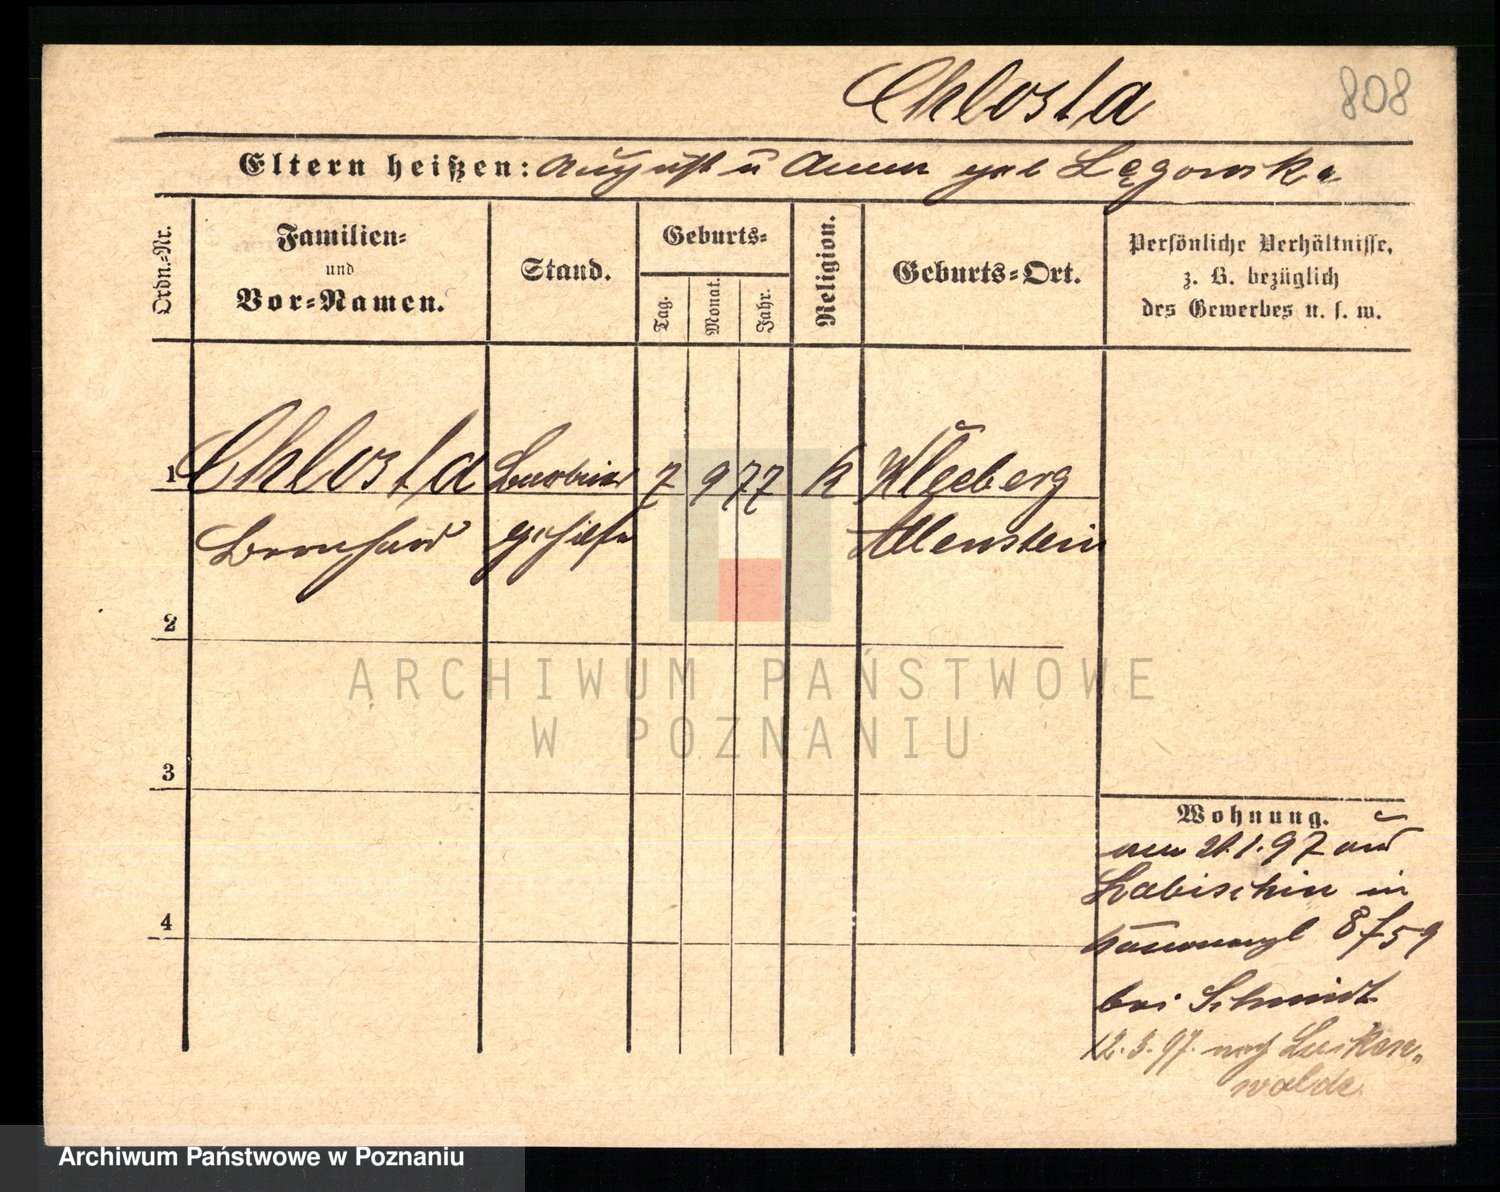 Chlosta 808
Eltern heißen: August u Anna geb Lęgowska
Ordn.-Nr.
Familien-
und
Vor-Namen.
Stand.
Geburts-
Tag.
Monat.
Jahr.
Religion.
Geburts-Ort.
Persönliche Verhältnisse,
z. B. bezüglich
des Gewerbes u. s. w.
1 Chlosta Barbier 7 9 77 k Kleeberg
Bernhard gehilfe Allenstein
2
ARCHIWUM PAŃSTWOWE
W POZNANIU
3
Wohnung.
am 21.1.97 aus
Labischin in
4
8/59
bei Schmidt
12.3.97. nach Lucken-
walde
Archiwum Państwowe w Poznaniu